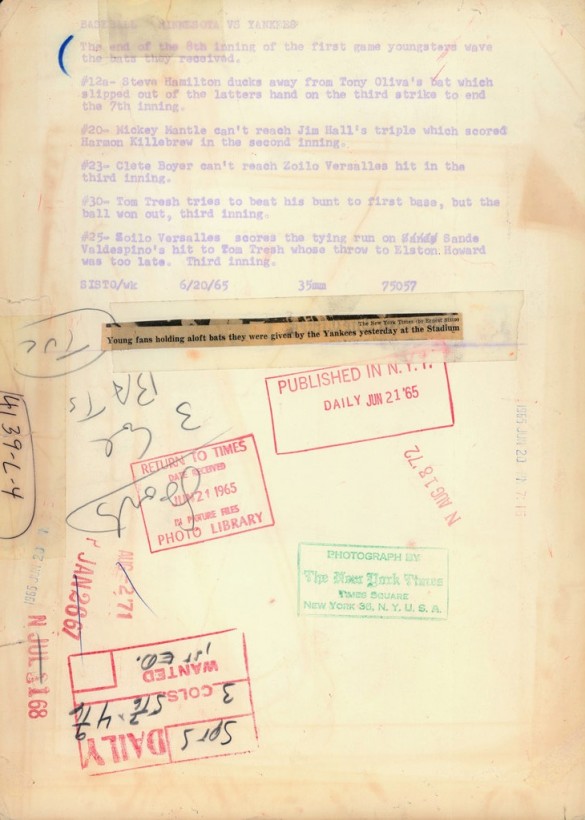 BASEBALL MINNESOTA VS YANKEES
The end of the 8th inning of the first game youngsters wave
the bats they received.
#12a- Steve Hamilton ducks away from Tony Oliva's bat which
slipped out of the latters hand on the third strike to end
the 7th inning.
#20- Mickey Mantle can't reach Jim Hall's triple which scored
Harmon Killebrew in the second inning.
#23- Clete Boyer can't reach Zoilo Versalles hit in the
third inning.
#30- Tom Tresh tries to beat his bunt to first base, but the
ball won out, third inning.
#25- Zoilo Versalles scores the tying run on Sande
Valdespino's hit to Tom Tresh whose throw to Elston Howard
was too late. Third inning.
SISTO/wk 6/20/65 35mm 75057
The New York Times (by Ernest Sisto)
Young fans holding aloft bats they were given by the Yankees yesterday at the Stadium
TUC
BATS
3 Col
Sports
4139-L-4
PUBLISHED IN N.Y.T.
DAILY JUN 21 '65
RETURN TO TIMES
DATE RECEIVED
JUN 21 1965
IN PICTURE FILES
PHOTO LIBRARY
N AUG 18 72
PHOTOGRAPH BY
The New York Times
TIMES SQUARE
NEW YORK 36, N. Y. U. S. A.
1965 JUN 20
JAN 28 67
AUG -2 71
N JUL 31 68
DAILY
Spts
3 COLS.
WANTED
1st ED.